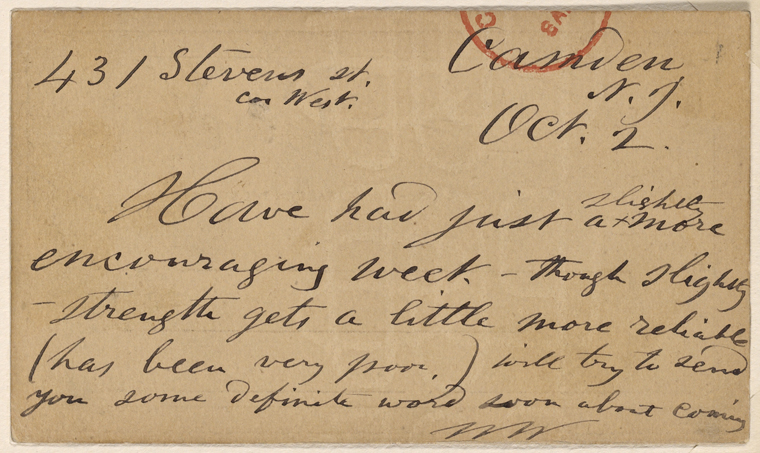 431 Stevens st.
cor West.
Camden
N.J.
Oct. 2.
slightly
Have had just a more
encouraging week. - though slightly
- strength gets a little more reliable
(has been very poor,) will try to send
you some definite word soon about coming
WW